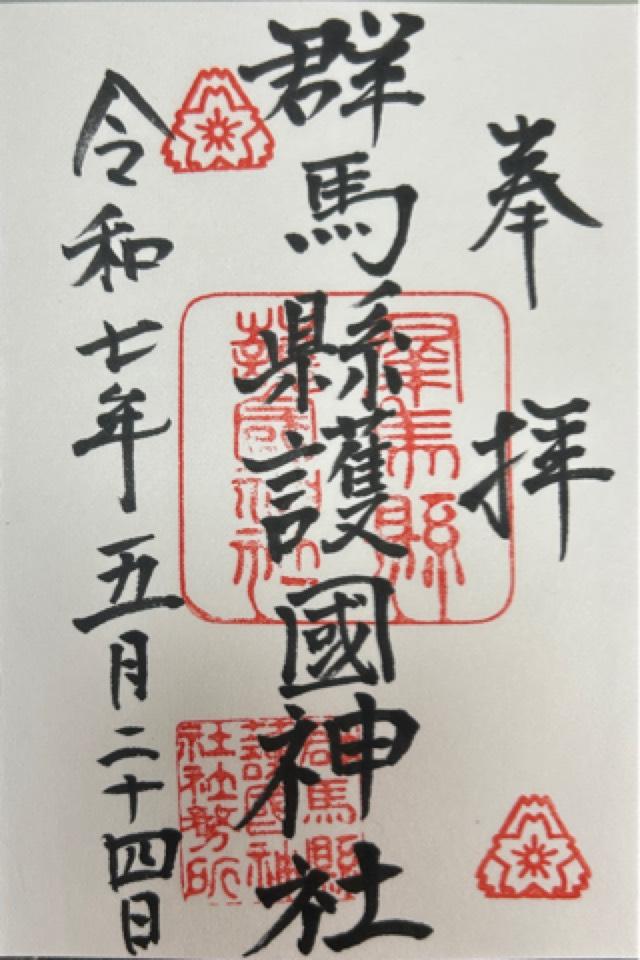 奉拝
群馬縣護國神社
群馬縣
護國神社
群馬縣
護國神
社社務所
令和七年五月二十四日